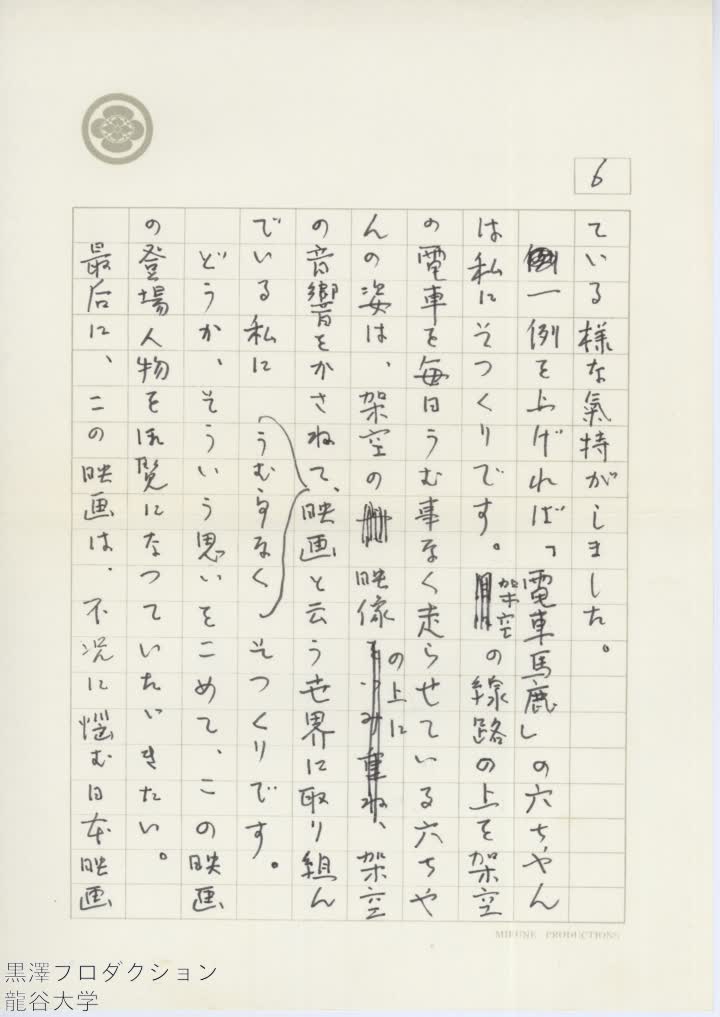 6
ている様な氣持がしました。
一例を上げれば「電車馬鹿」の六ちゃん
は私にそつくりです。架空の線路の上を架空
の電車を毎日うむ事なく走らせている六ちゃ
んの姿は、架空の映像の上に、架空
の音響をかさねて、映画と云う世界に取り組ん
でいる私にうむ事なくそつくりです。
どうか、そういう思いをこめて、この映画
の登場人物をほ覧になつていたゞきたい。
最后に、この映画は、不況に悩む日本映画
MIFUNE PRODUCTIONS
黒澤プロダクション
龍谷大学